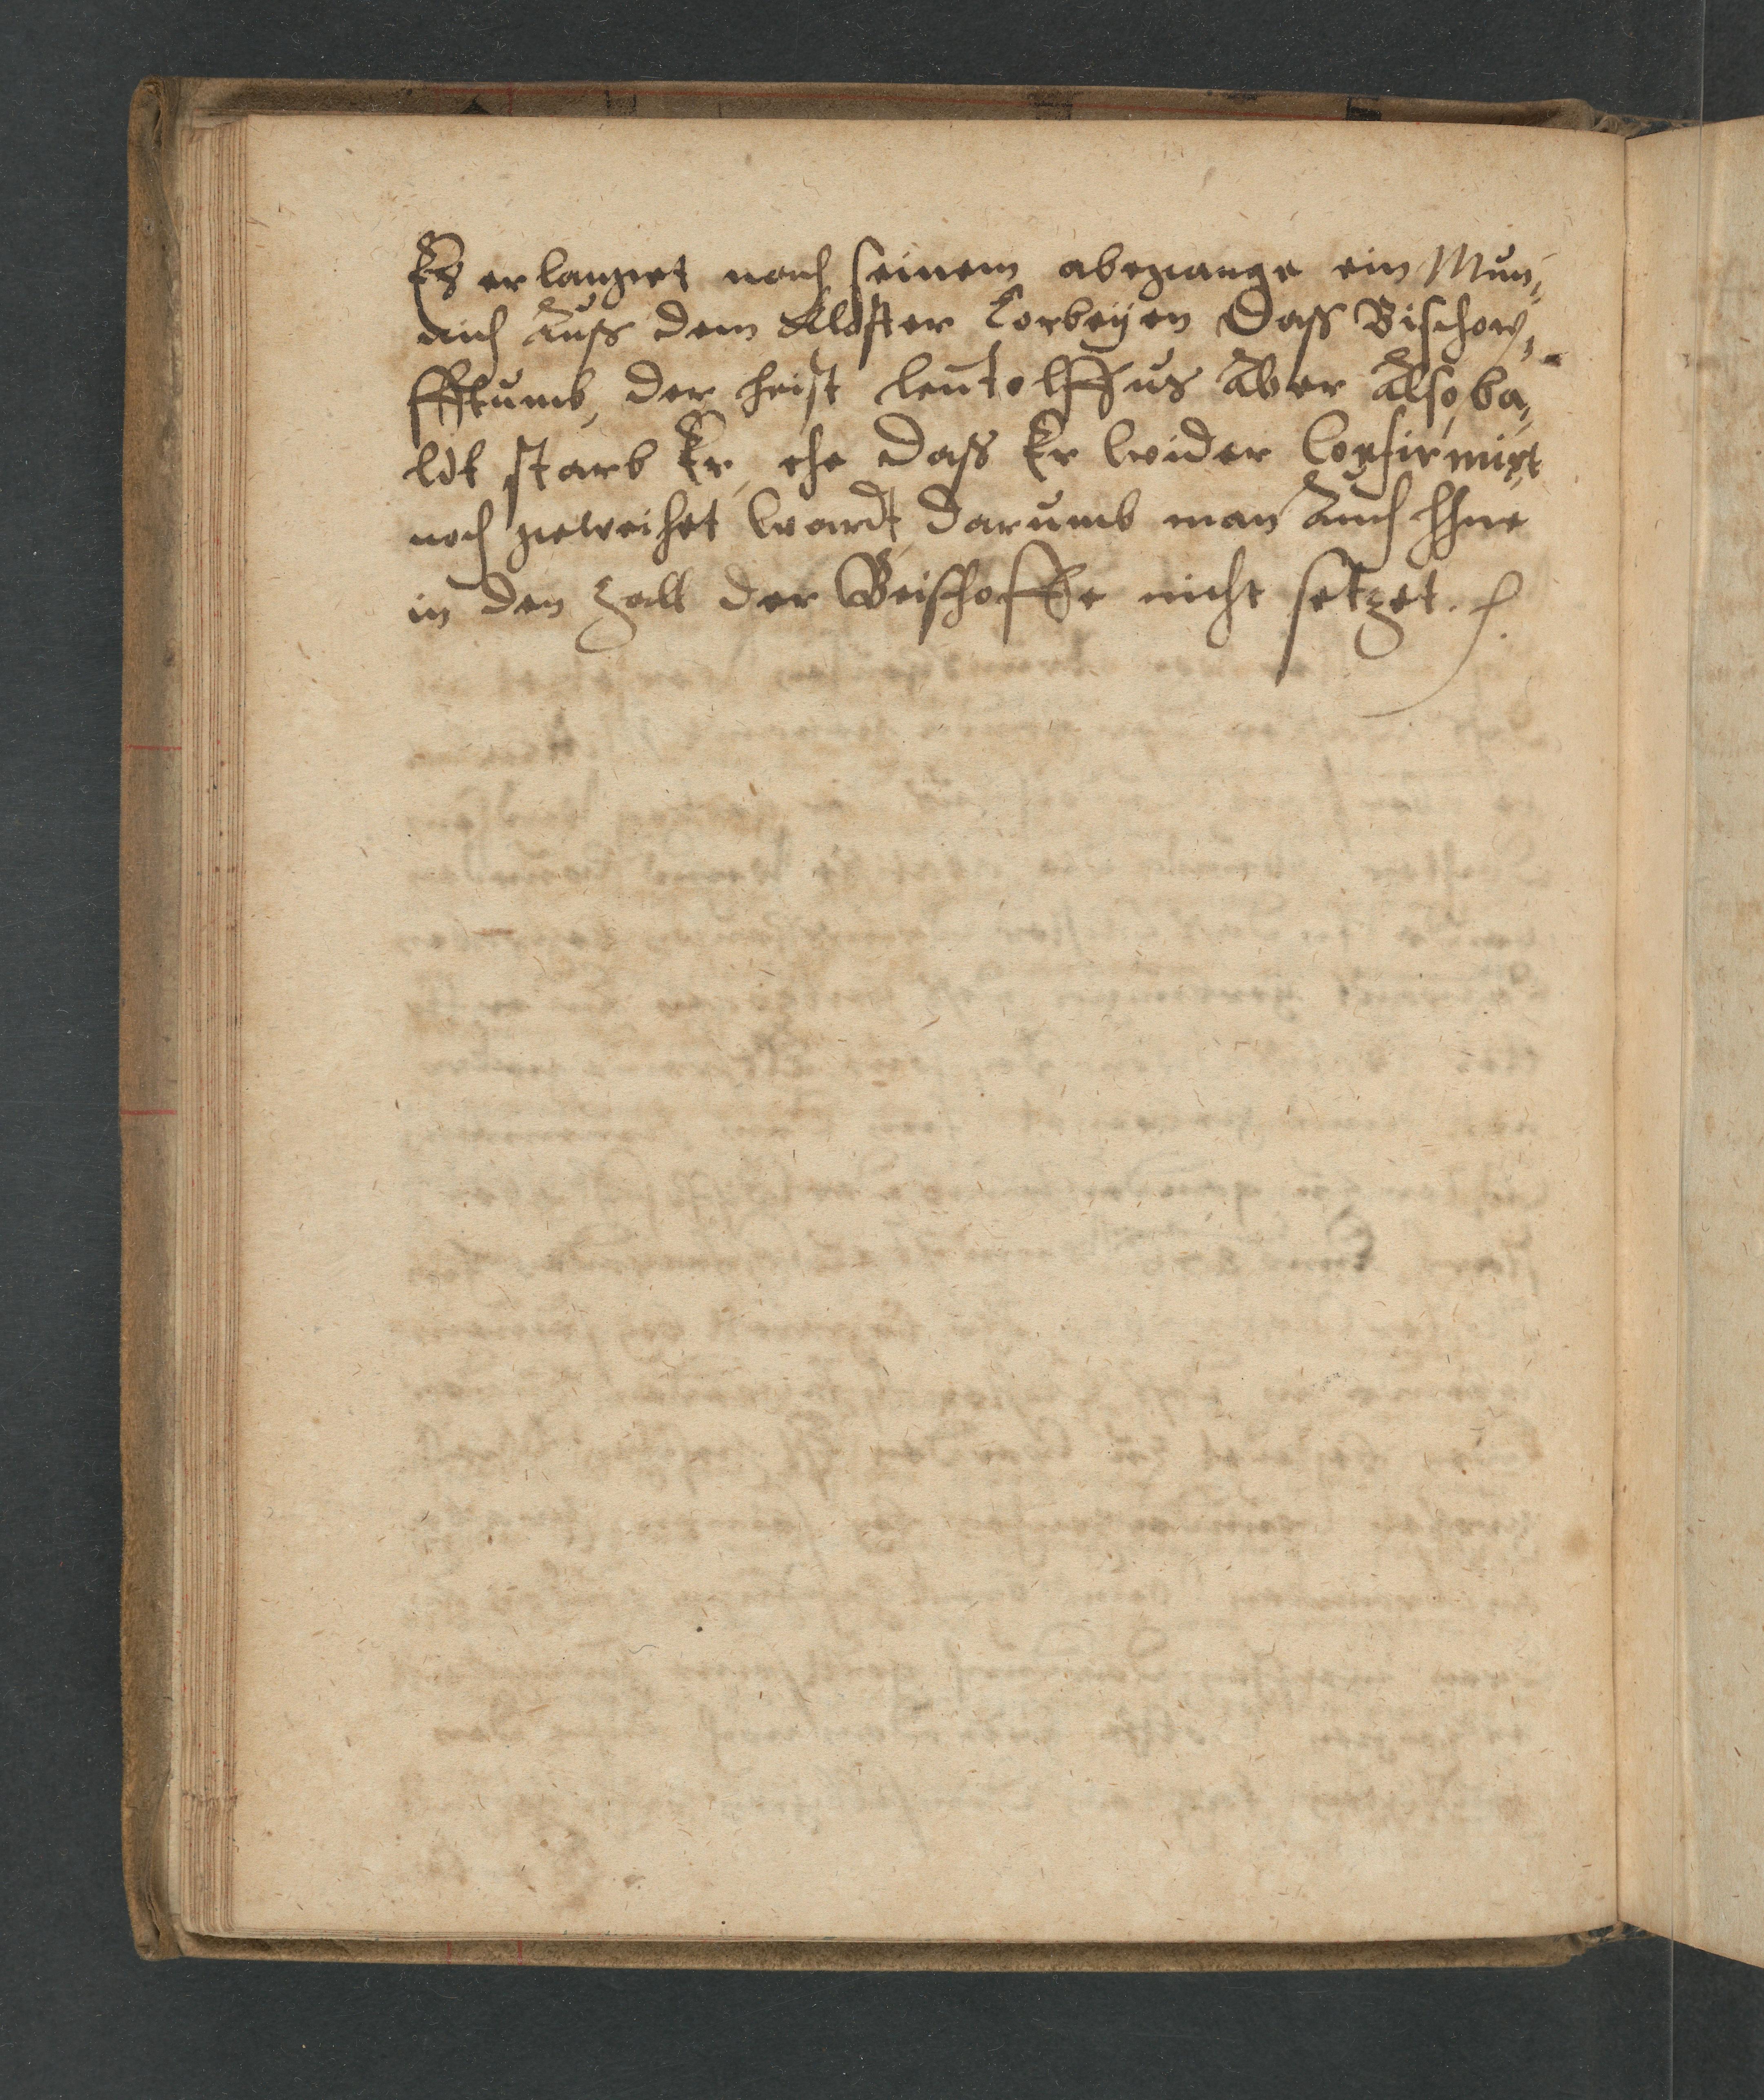 Es erlanget nach seinem abgange ein Mun,
nich Auß dem Kloster Corbeyen Daß Bischow,
fftumb, der heist leutolffus Aber Alsoba,
ldt starb Er, ehe daß Er wider Confirmirt
noch geweihet wardt, darumb man Auch Ihne
in den Zall der Beischoffe nicht setzet.